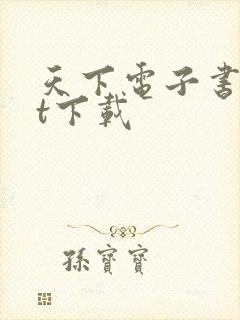 天下電子書
t下載
孫寶寶